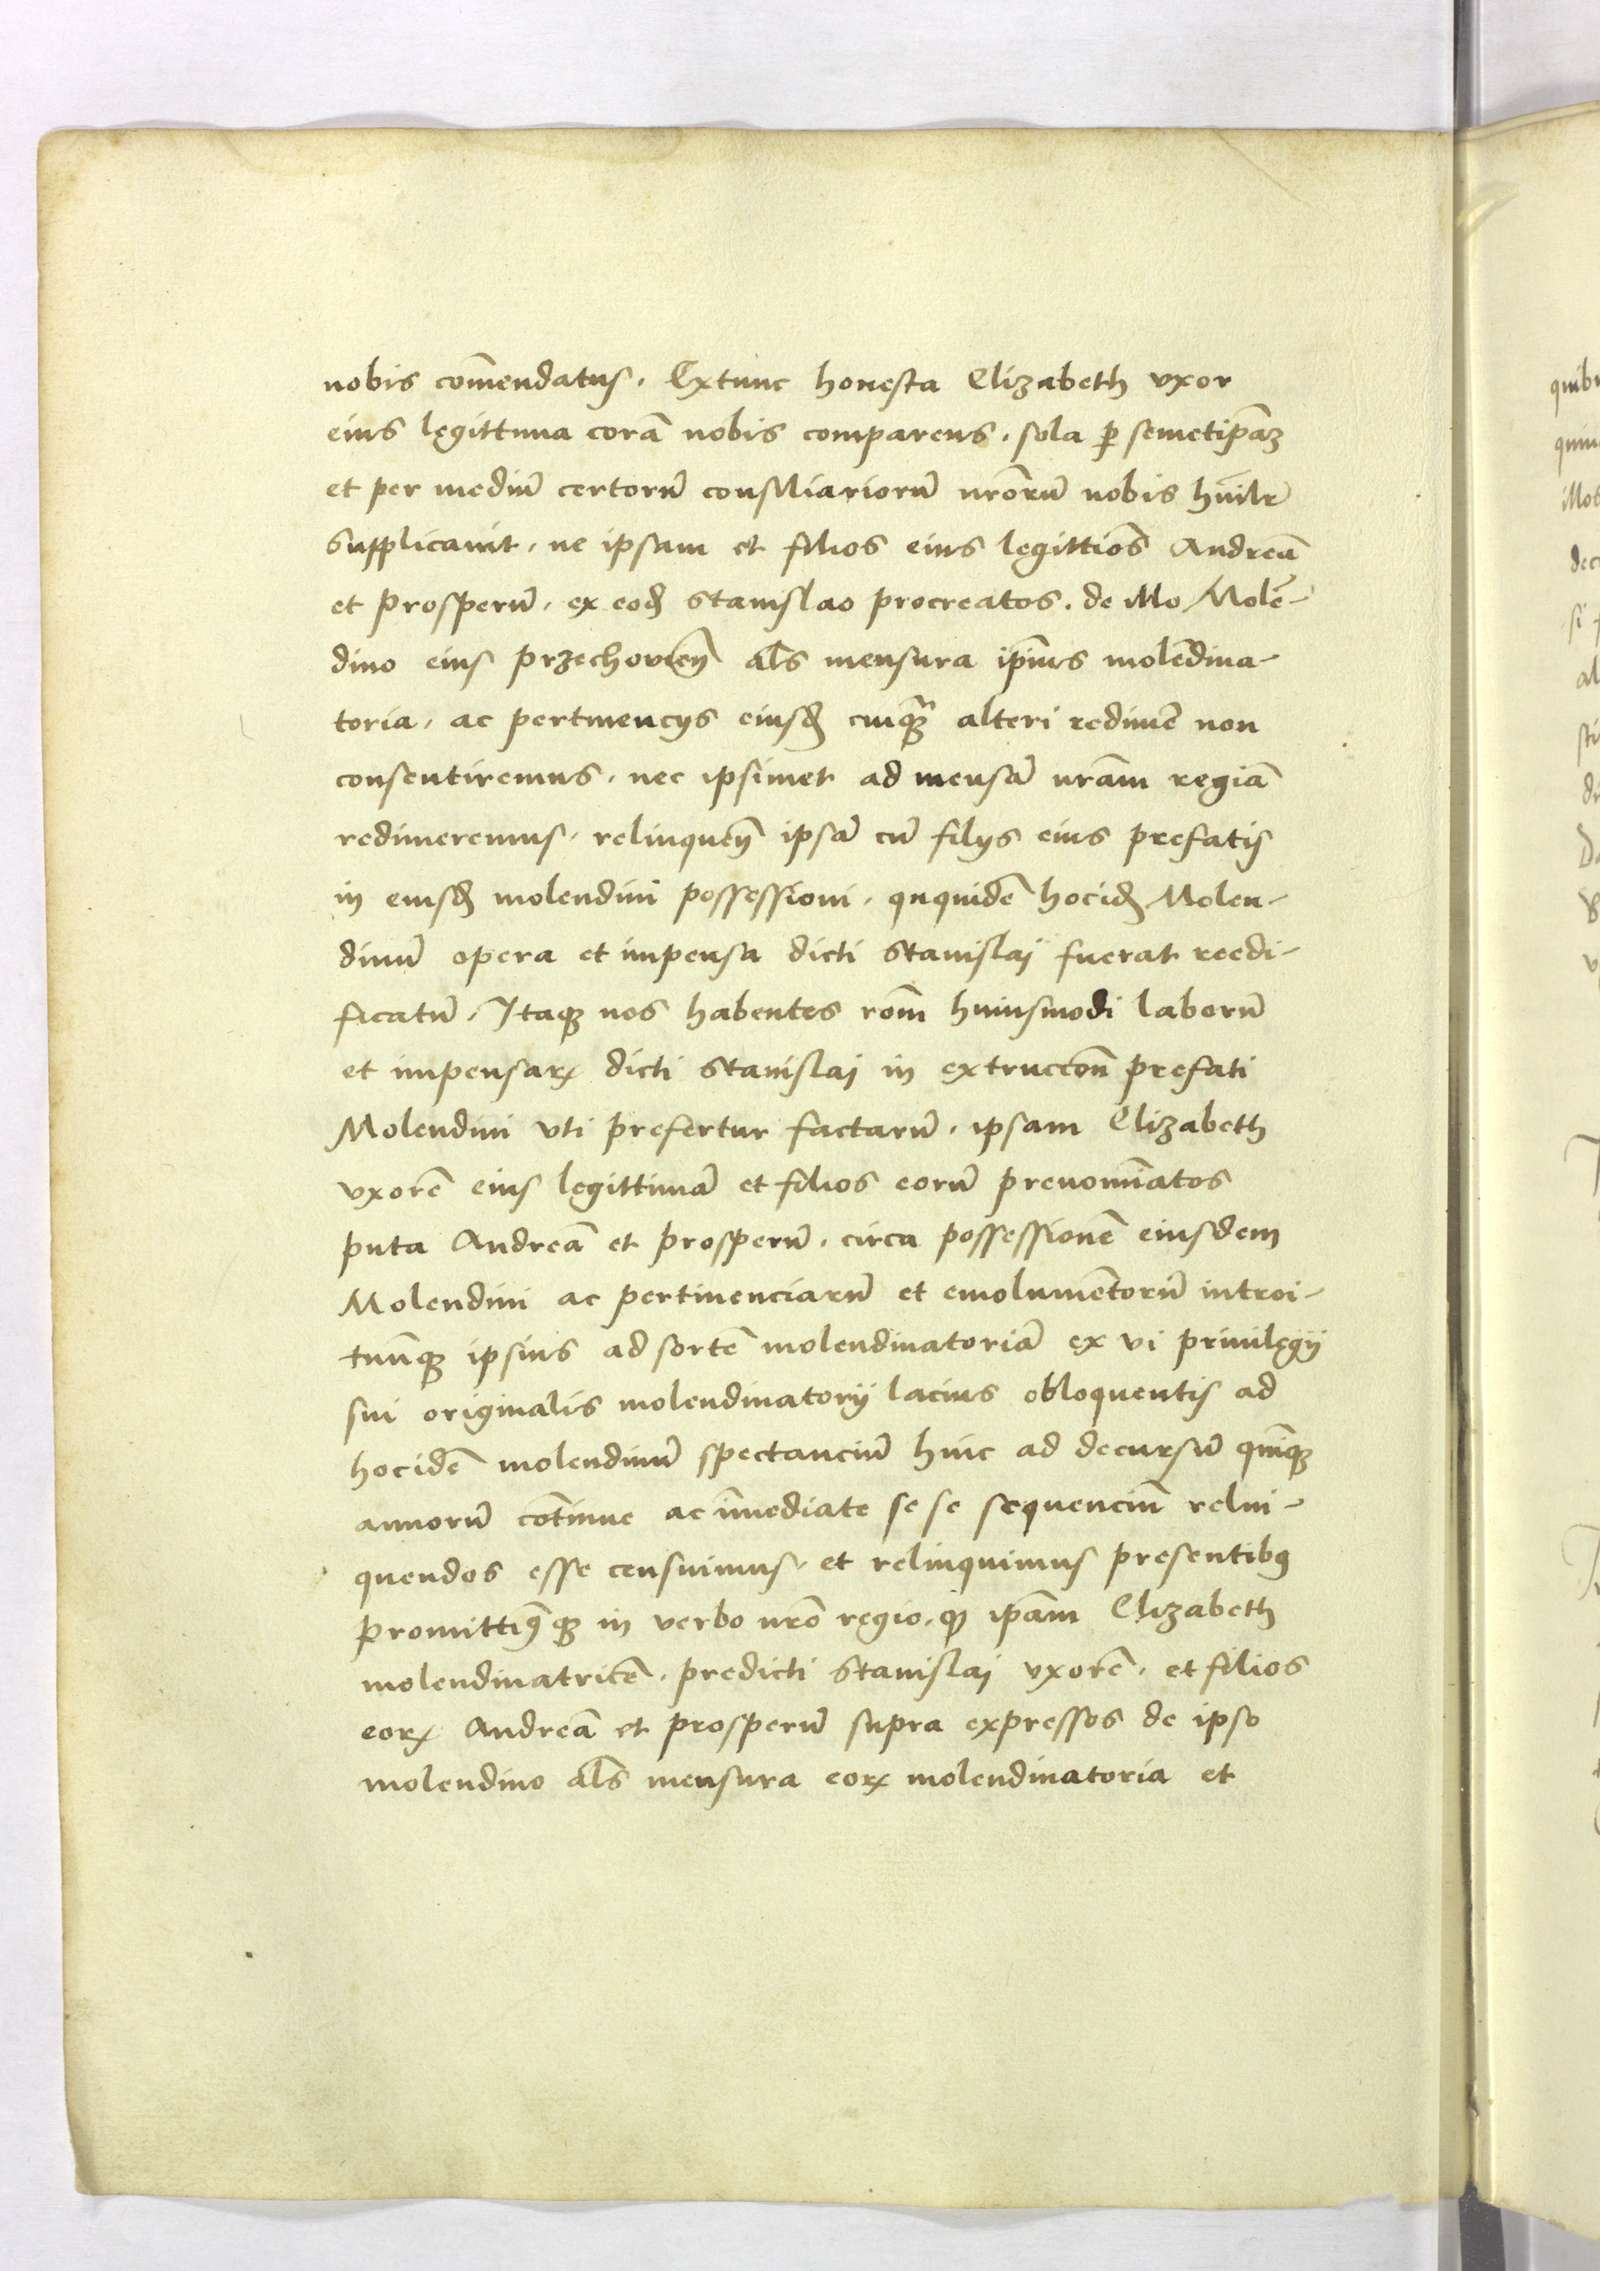 nobis com̄endatus. Extunc honesta Elizabeth vxor
eius legittima corā nobis comparens. sola ꝑ semetip̄aꝫ
et per mediū certorū consiliariorū nr̄orū nobis hūilr̄
supplicauit. ne ipsam et filios eius legittiōs Andreā
et prosperū. ex eoꝺ stanislao procreatos. de illo Molē-
dino eius przechowień al̄s mensura ip̄ius molēdina-
toria. ac pertinencys eiusꝺ cuiqꝫ̄ alteri redimē non
consentiremus. nec ipsimet ad mensā nr̄am regiā
redimeremus. relinqueń ipsā cū filys eius prefatis
in eiusꝺ molendini possessioni. qn̄quidē hociꝺ Molen-
dinū opera et impensa dicti stanislaj fuerat reedi-
ficatū. Itaqꝫ nos habentes rōm huiusmodi laborū
et impensarꝝ dicti stanislaj in extruccōn prefati
Molendini vti prefertur factarū. ipsam Elizabeth
vxorē eius legittimā et filios eorū prenomīatos
puta Andreā et prosperū. circa possessionē eiusdem
Molendini ac pertinenciarū et emolumētorū introi-
tuūqꝫ ipsius ad sortē molendinatoriā ex vi priuilegij
sui originalis molendinatorij lacius obloquentis ad
hocidē molendinū spectanciū hinc ad decursū quīqꝫ
annorū cōtinue ac īmediate se se sequenciū relin-
quendos esse censuimus. et relinquimus presentibꝯ
promittiꝯqꝫ in verbo nr̄o regio. qꝫ ip̄am Elizabeth
molendinatricē. predicti stanislaj vxorē. et filios
eorꝝ Andreā et prosperū supra expressos de ipso
molendino al̄s mensura eorꝝ molendinatoria et